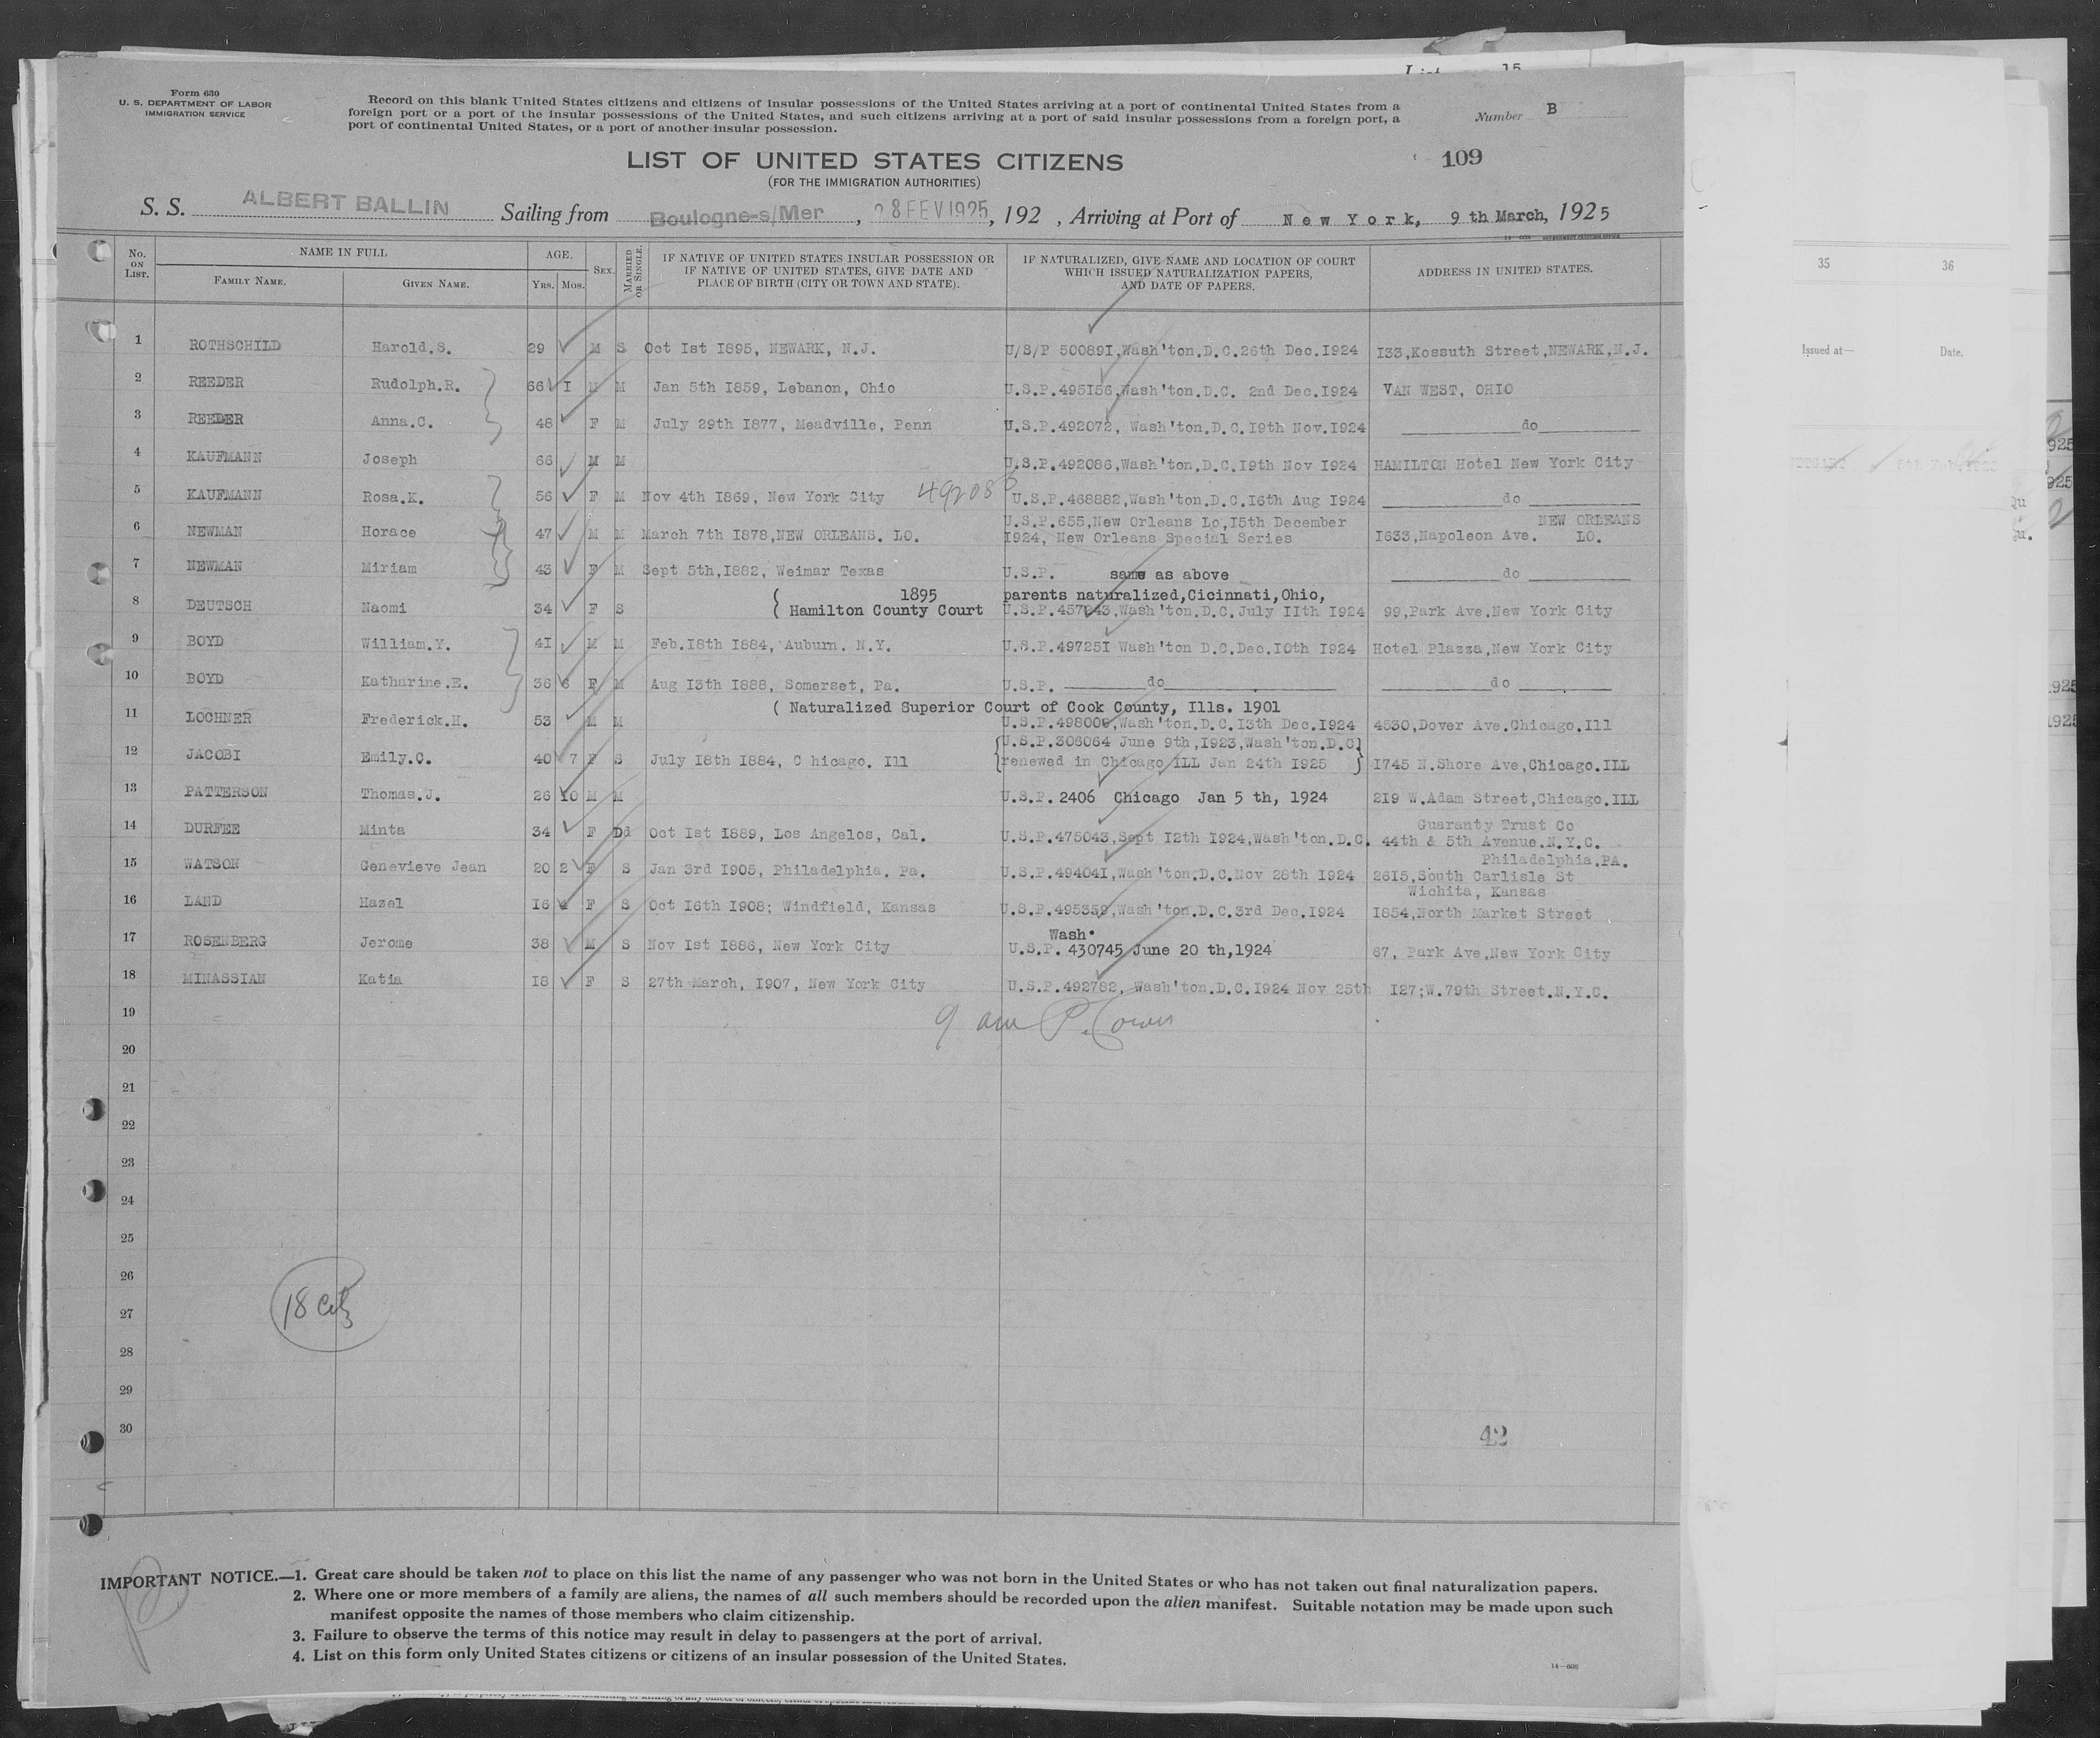 Form 630
U. S. DEPARTMENT OF LABOR
IMMIGRATION SERVICE
Record on this blank United States citizens and citizens of insular possessions of the United States arriving at a port of continental United States from a
foreign port or a port of the insular possessions of the United States, and such citizens arriving at a port of said insular possessions from a foreign port, a
port of continental United States, or a port of another insular possession.
Number B
LIST OF UNITED STATES CITIZENS
109
(FOR THE IMMIGRATION AUTHORITIES)
S. S. ALBERT BALLIN Sailing from Boulogne-s/Mer, 28 FEV 1925, 192 , Arriving at Port of New York, 9 th March, 1925
No. ON LIST. NAME IN FULL FAMILY NAME. GIVEN NAME. AGE. YRS. MOS. SEX. MARRIED OR SINGLE. IF NATIVE OF UNITED STATES INSULAR POSSESSION OR IF NATIVE OF UNITED STATES, GIVE DATE AND PLACE OF BIRTH (CITY OR TOWN AND STATE). IF NATURALIZED, GIVE NAME AND LOCATION OF COURT WHICH ISSUED NATURALIZATION PAPERS, AND DATE OF PAPERS. ADDRESS IN UNITED STATES.
1 ROTHSCHILD Harold.S. 29 M S Oct Ist I895, NEWARK, N.J. U/S/P 50089I,Wash'ton.D.C.26th Dec.I924 I33,Kossuth Street,NEWARK,N.J.
2 REEDER Rudolph.R. 66 I M M Jan 5th I859, Lebanon, Ohio U.S.P.495I56,Wash'ton.D.C. 2nd Dec.I924 VAN WEST, OHIO
3 REEDER Anna.C. 48 F M July 29th I877, Meadville, Penn U.S.P.492072, Wash'ton.D.C.I9th Nov.I924 do
4 KAUFMANN Joseph 66 M M U.S.P.492086,Wash'ton,D.C.I9th Nov I924 HAMILTON Hotel New York City
5 KAUFMANN Rosa.K. 56 F M Nov 4th I869, New York City U.S.P.468882,Wash'ton.D.C.I6th Aug I924 do
6 NEWMAN Horace 47 M M March 7th I878,NEW ORLEANS. LO. U.S.P.655,New Orleans Lo,I5th December NEW ORLEANS
I924, New Orleans Special Series I633,Napoleon Ave. LO.
7 NEWMAN Miriam 43 F M Sept 5th,I882, Weimar Texas U.S.P. same as above do
1895 parents naturalized,Cicinnati,Ohio,
8 DEUTSCH Naomi 34 F S ( Hamilton County Court U.S.P.457043,Wash'ton.D.C.July IIth I924 99,Park Ave.New York City
9 BOYD William.Y. 4I M M Feb.I8th I884, Auburn. N.Y. U.S.P.49725I Wash'ton D.C.Dec.I0th I924 Hotel Plazza,New York City
10 BOYD Katharine.E. 36 6 F M Aug I3th I888, Somerset, Pa. U.S.P. do do
( Naturalized Superior Court of Cook County, Ills. 1901
11 LOCHNER Frederick.H. 53 M M U.S.P.498008,Wash'ton.D.C.I3th Dec.I924 4530,Dover Ave.Chicago.Ill
U.S.P.306064 June 9th,I923,Wash'ton.D.C
12 JACOBI Emily.C. 40 7 F S July I8th I884, C hicago. Ill renewed in Chicago ILL Jan 24th I925 I745 N.Shore Ave,Chicago.ILL
13 PATTERSON Thomas.J. 26 10 M M U.S.P. 2406 Chicago Jan 5 th, 1924 2I9 W.Adam Street,Chicago.ILL
Guaranty Trust Co
14 DURFEE Minta 34 F Dd Oct Ist I889, Los Angelos, Cal. U.S.P.475043,Sept I2th I924,Wash'ton.D.C. 44th & 5th Avenue.N.Y.C.
Philadelphia.PA.
15 WATSON Genevieve Jean 20 2 F S Jan 3rd I905, Philadelphia. Pa. U.S.P.49404I,Wash'ton.D.C.Nov 28th I924 26I5,South Carlisle St
Wichita, Kansas
16 LAND Hazel I6 4 F S Oct I6th I908; Windfield, Kansas U.S.P.495359,Wash'ton.D.C.3rd Dec.I924 I854,North Market Street
Wash.
17 ROSENBERG Jerome 38 M S Nov Ist I886, New York City U.S.P. 430745 June 20 th,1924 67, Park Ave,New York City
18 MINASSIAN Katia I8 F S 27th March, I907, New York City U.S.P.492782, Wash'ton.D.C.I924 Nov 25th I27;W.79th Street.N.Y.C.
19
20
21
22
23
24
25
26
18
27
28
29
30
42
IMPORTANT NOTICE.—1. Great care should be taken not to place on this list the name of any passenger who was not born in the United States or who has not taken out final naturalization papers.
2. Where one or more members of a family are aliens, the names of all such members should be recorded upon the alien manifest. Suitable notation may be made upon such
manifest opposite the names of those members who claim citizenship.
3. Failure to observe the terms of this notice may result in delay to passengers at the port of arrival.
4. List on this form only United States citizens or citizens of an insular possession of the United States.
14—608
35 36
Issued at— Date.